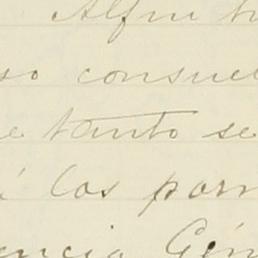 Al fin
so consuel
e tanto se
á los porr
encia Gén